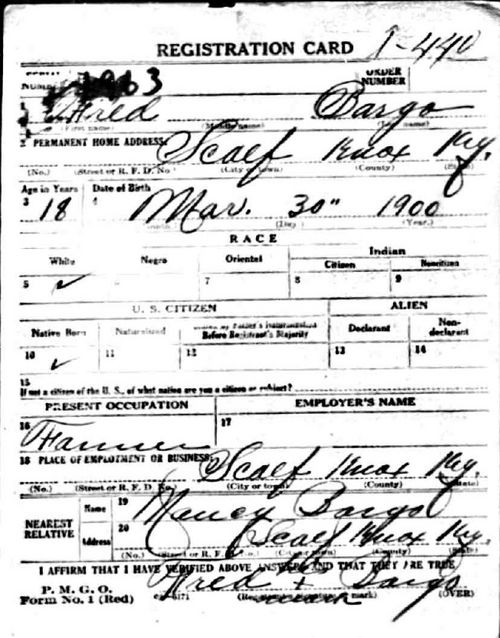 REGISTRATION CARD 1-440
SERIAL NUMBER 1963 ORDER NUMBER
1 Alfred Bargo
(First name) (Middle name) (Last name)
2 PERMANENT HOME ADDRESS: Scalf Knox Ky.
(No.) (Street or R. F. D. No.) (City or town) (County) (State)
Age in Years Date of Birth
3 18 4 Mar. 30" 1900
(Month) (Day) (Year.)
RACE
White Negro Oriental Indian
Citizen Noncitizen
5 ✓ 7 8 9
U. S. CITIZEN ALIEN
Native Born Naturalized Citizen by Father's Naturalization Before Registrant's Majority Declarant Non-declarant
10 ✓ 11 12 13 14
15
If not a citizen of the U. S., of what nation are you a citizen or subject?
PRESENT OCCUPATION EMPLOYER'S NAME
16 Farmer 17
18 PLACE OF EMPLOYMENT OR BUSINESS: Scalf Knox Ky.
(No.) (Street or R. F. D. No.) (City or town) (County) (State)
NEAREST RELATIVE Name 19 Nancy Bargo
Address 20 Scalf Knox Ky.
(No.) (Street or R. F. D. No.) (City or town) (County) (State)
I AFFIRM THAT I HAVE VERIFIED ABOVE ANSWERS AND THAT THEY ARE TRUE
P. M. G. O.
Form No. 1 (Red) Alfred + Bargo
mark) (OVER)